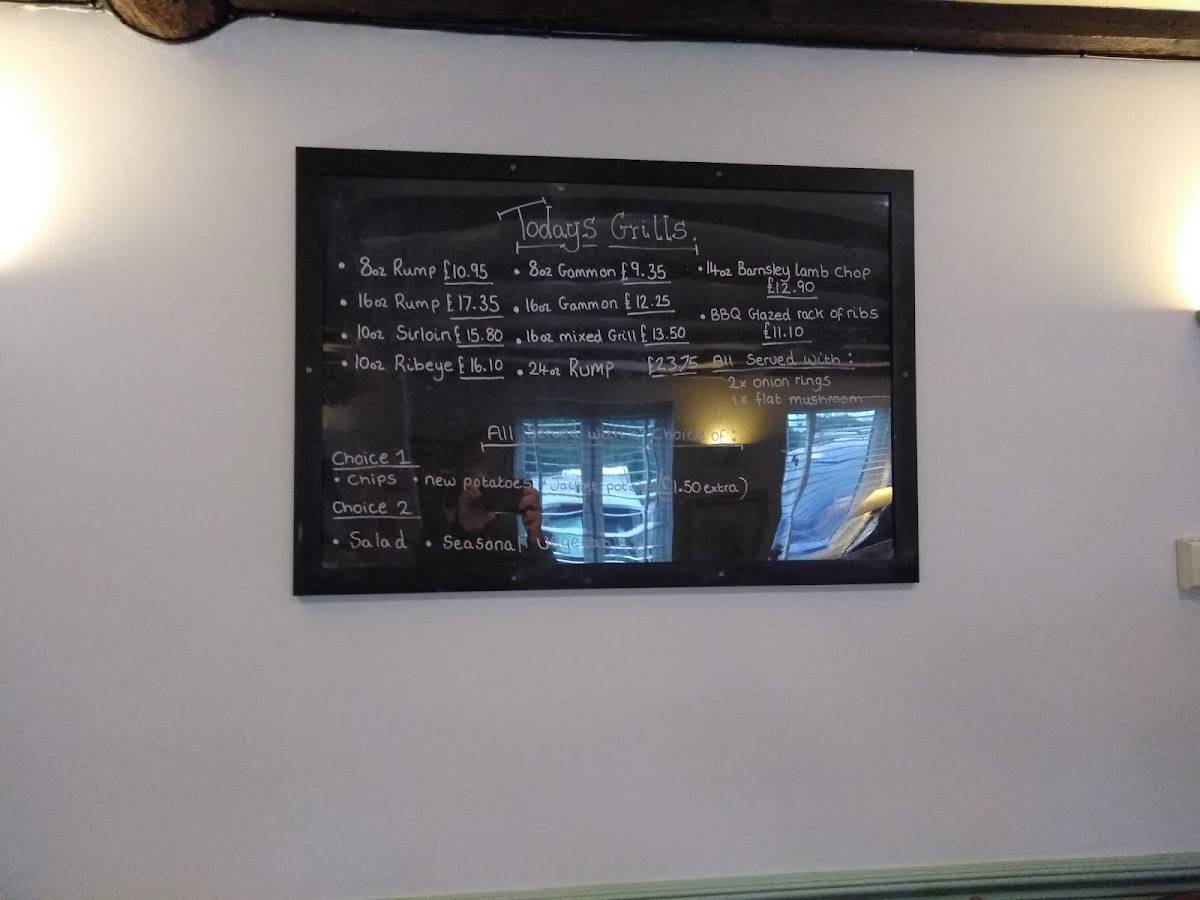 Todays Grills.
• 8oz Rump £10.95
• 16oz Rump £17.35
• 10oz Sirloin £15.80
• 10oz Ribeye £16.10
• 8oz Gammon £9.35
• 16oz Gammon £12.25
• 16oz mixed Grill £13.50
• 24oz RUMP £23.75
• 14oz Barnsley lamb chop
£12.90
• BBQ Glazed rack of ribs
£11.10
All Served with:
2x onion rings
1x flat mushroom
All Served with a choice of:
Choice 1
• chips • new potatoes • Jacket potato (£1.50 extra)
Choice 2
• Salad • Seasonal